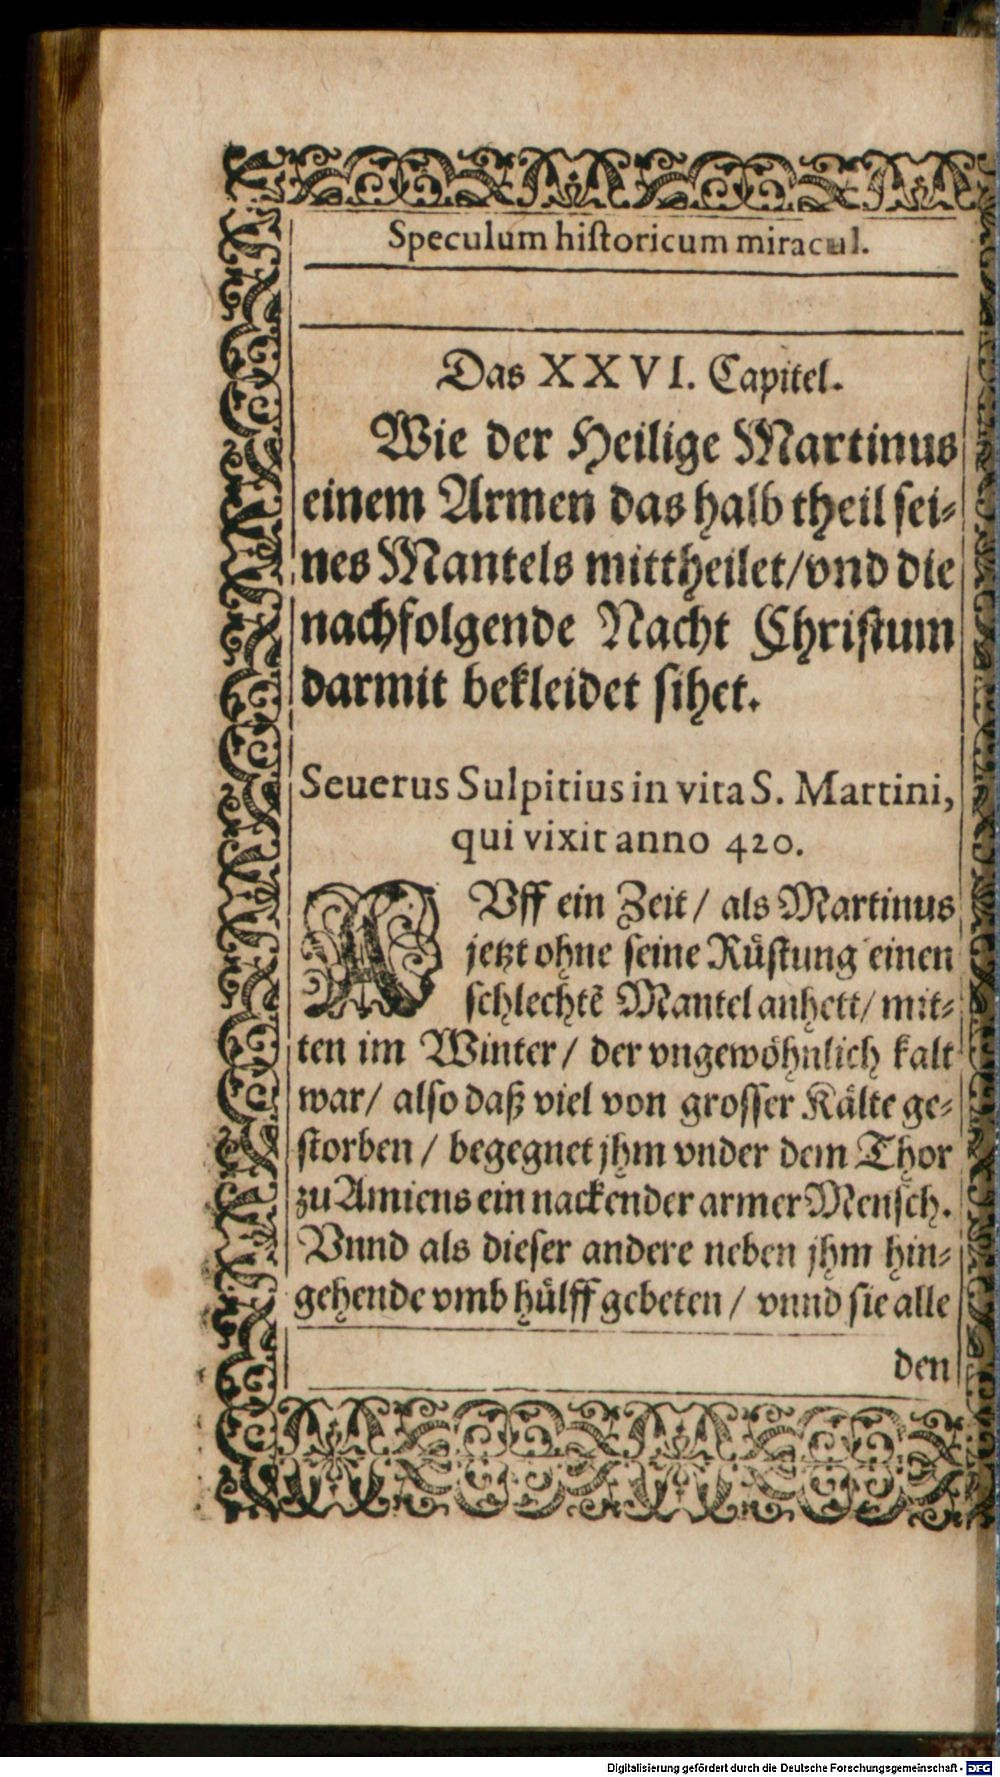 Speculum historicum miracul.
Das XXVI. Capitel.
Wie der Heilige Martinus
einem Armen das halb theil sei-
nes Mantels mittheilet/vnd die
nachfolgende Nacht Christum
darmit bekleidet sihet.
Seuerus Sulpitius in vita S. Martini,
qui vixit anno 420.
AVff ein Zeit / als Martinus
jetzt ohne seine Rüstung einen
schlechtẽ Mantel anhett/ mit-
ten im Winter / der vngewöhnlich kalt
war/ also daß viel von grosser Kälte ge-
storben / begegnet jhm vnder dem Thor
zu Amiens ein nackender armer Mensch.
Vnnd als dieser andere neben jhm hin-
gehende vmb hülff gebeten / vnnd sie alle
den
Digitalisierung gefördert durch die Deutsche Forschungsgemeinschaft - DFG